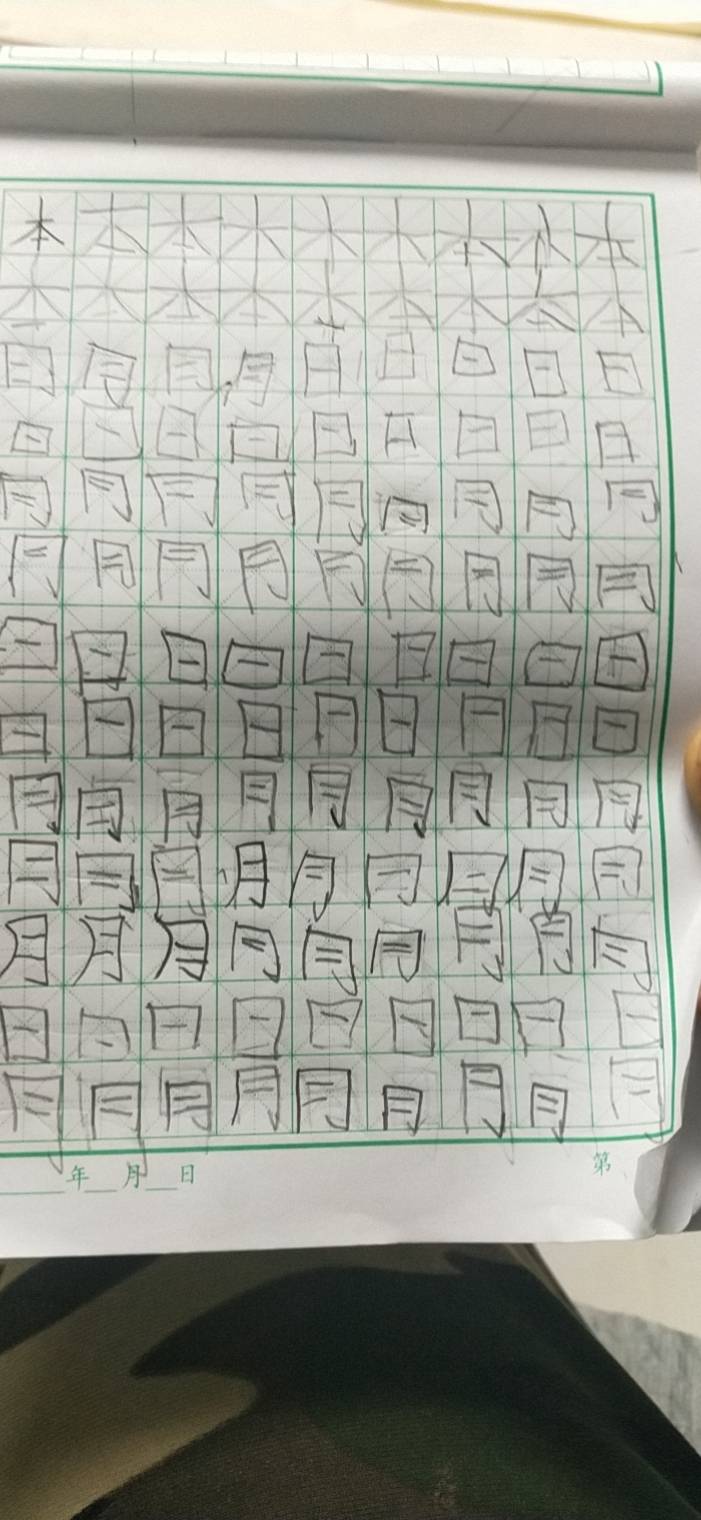 本本本木木木本本本
本本本本本本本本本
日月日月日日日日日
日日日日日日日日日
月月月月月月月月月
月月月月月月月月月
日日日日日日日日日
日日日日日日日日日
月月月月月月月月月
月月月月月月月月月
月月月月月月月月月
日日日日日日日日日
月月月月月月月月月
年 月 日 第